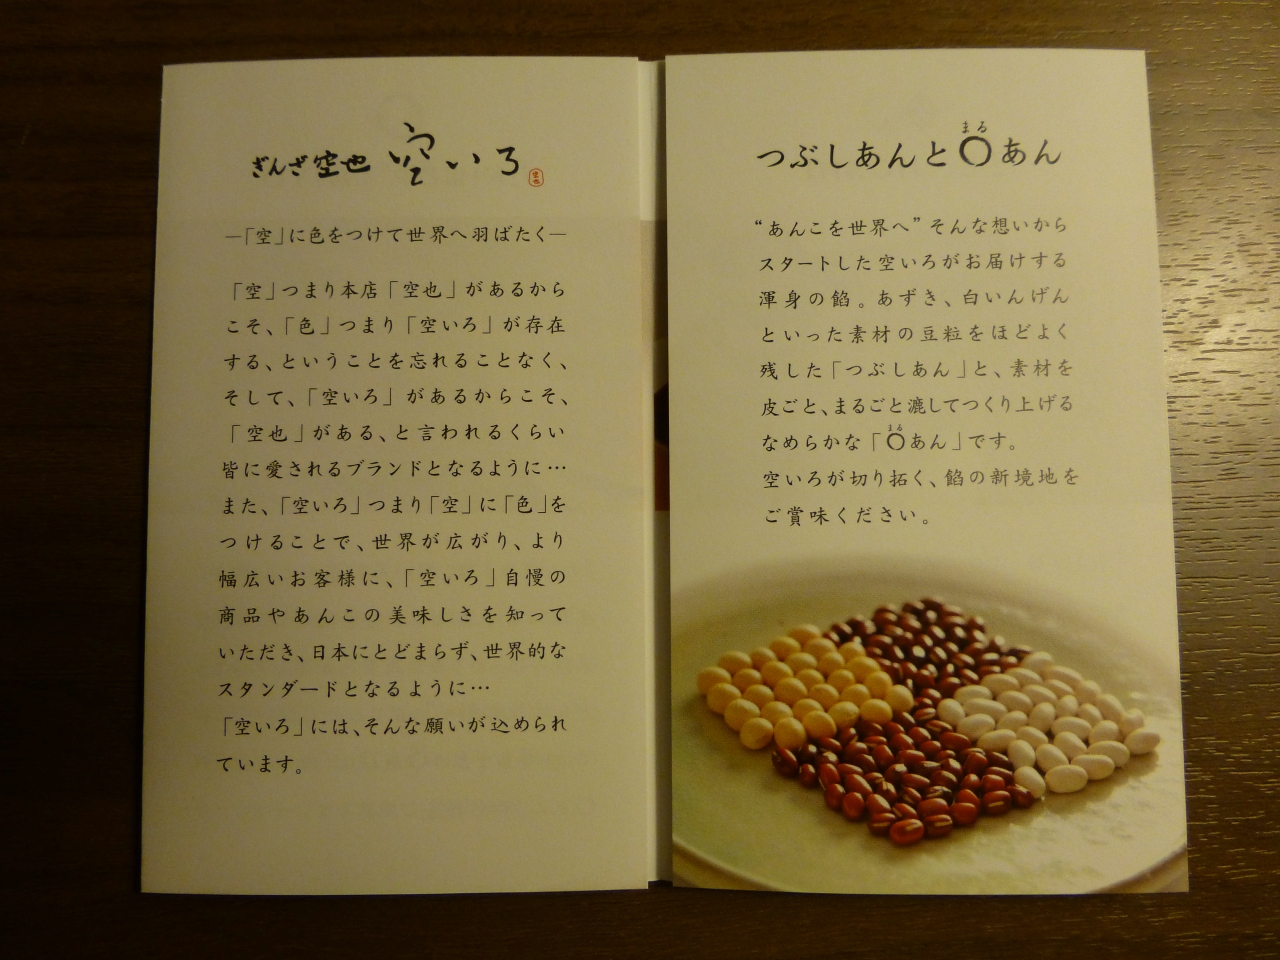 ぎんざ空也 空いろ
空也
―「空」に色をつけて世界へ羽ばたく―
「空」つまり本店「空也」があるから
こそ、「色」つまり「空いろ」が存在
する、ということを忘れることなく、
そして、「空いろ」があるからこそ、
「空也」がある、と言われるくらい
皆に愛されるブランドとなるように…
また、「空いろ」つまり「空」に「色」を
つけることで、世界が広がり、より
幅広いお客様に、「空いろ」自慢の
商品やあんこの美味しさを知って
いただき、日本にとどまらず、世界的な
スタンダードとなるように…
「空いろ」には、そんな願いが込められ
ています。
まる
つぶしあんと〇あん
“あんこを世界へ”そんな想いから
スタートした空いろがお届けする
渾身の餡。あずき、白いんげん
といった素材の豆粒をほどよく
残した「つぶしあん」と、素材を
皮ごと、まるごと漉してつくり上げる
まる
なめらかな「〇あん」です。
空いろが切り拓く、餡の新境地を
ご賞味ください。